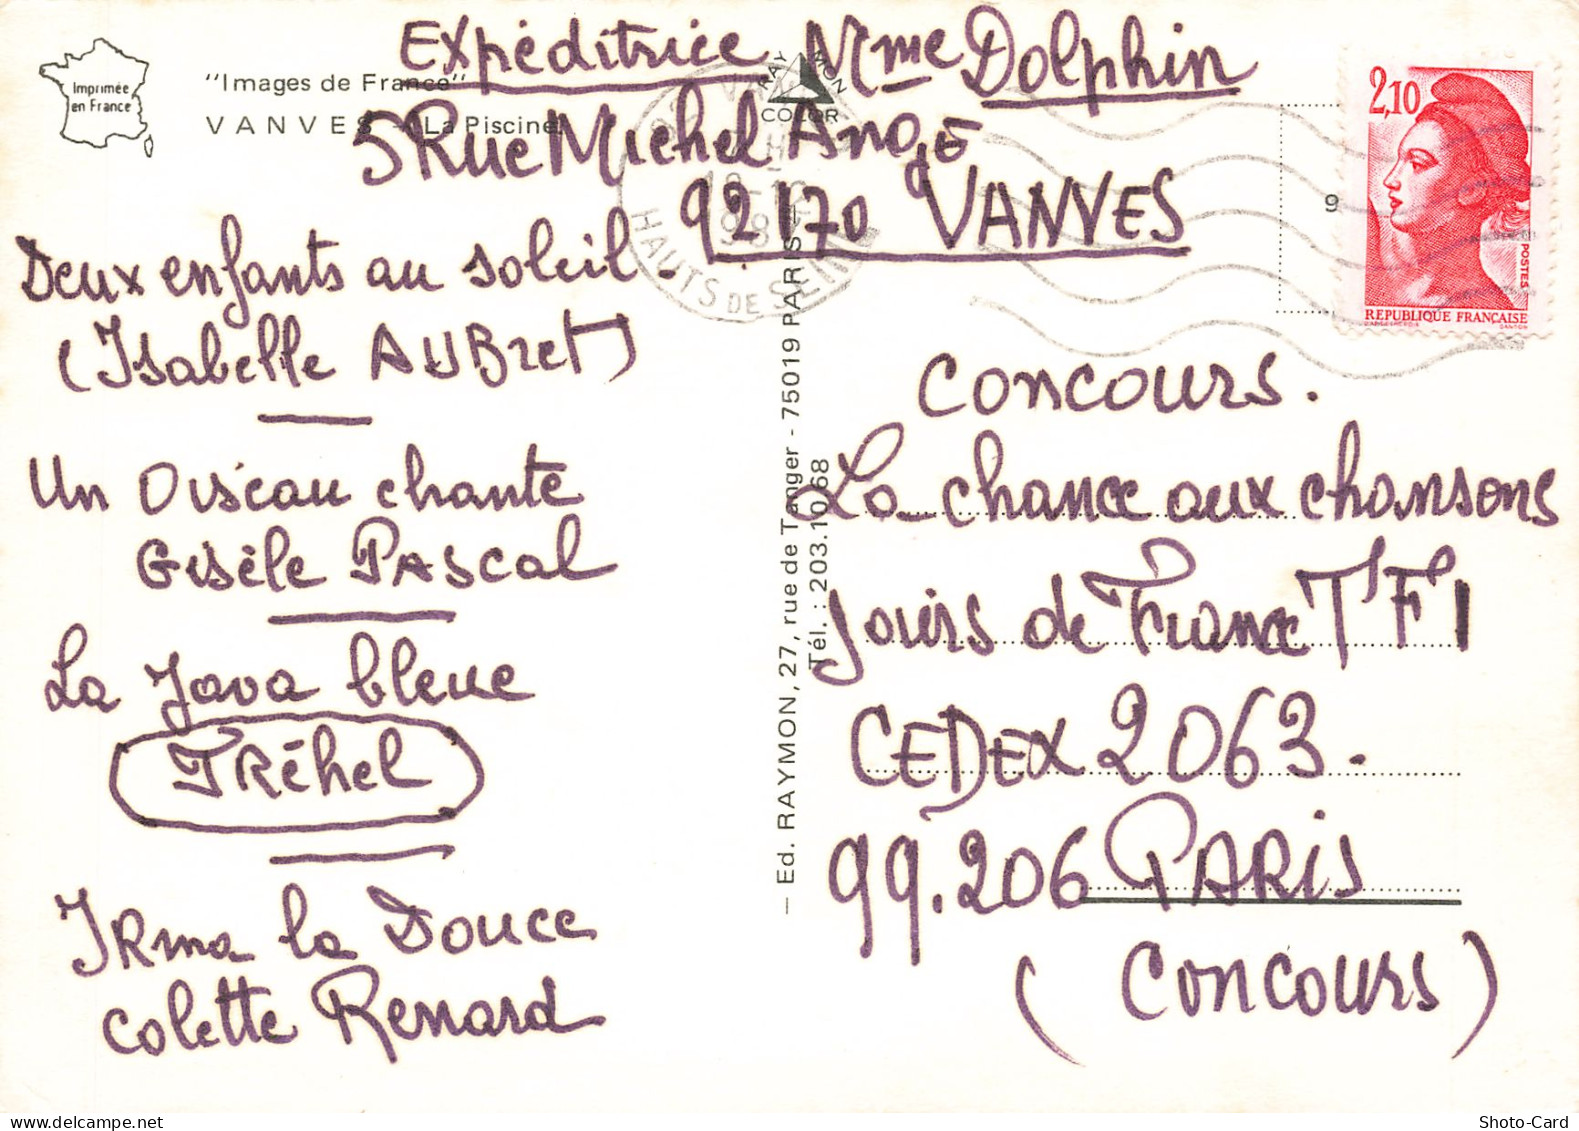 Expéditrice Mme Dolphin
Imprimée
en France
"Images de France"
VANVES - La Piscine
RAYMON
COLOR
5 Rue Michel Ange
92170 VANVES
HAUTS DE SEINE
2,10
POSTES
REPUBLIQUE FRANÇAISE
9
Deux enfants au soleil.
(Isabelle AUBret)
Un Oiseau chante
Gisèle PAscal
La Java bleue
FRéhel
IRma la Douce
Colette Renard
— Ed. RAYMON, 27, rue de Tanger - 75019 PARIS -
Tél. : 203.10.68
Concours.
La chance aux chansons
Jours de France TF1
CEDEX 2063.
99.206 PARis
(Concours)
Shoto-Card